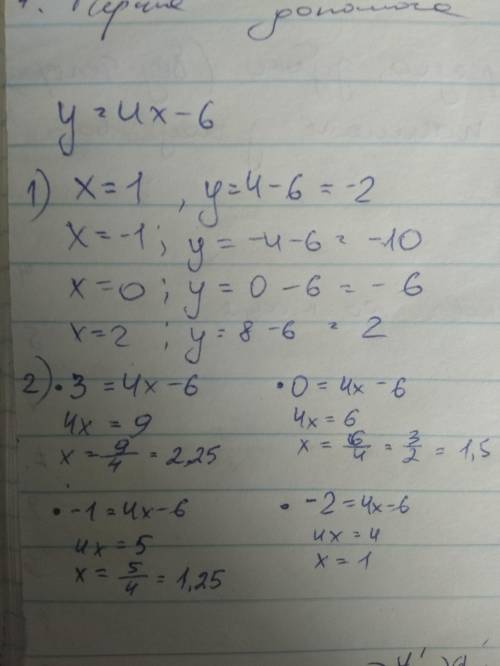 Перша допомога
y = 4x - 6
1) x = 1 , y = 4 - 6 = -2
x = -1 ; y = -4 - 6 = -10
x = 0 ; y = 0 - 6 = - 6
x = 2 ; y = 8 - 6 = 2
2) • 3 = 4x - 6
4x = 9
x = 9/4 = 2,25
• 0 = 4x - 6
4x = 6
x = 6/4 = 3/2 = 1,5
• -1 = 4x - 6
4x = 5
x = 5/4 = 1,25
• -2 = 4x - 6
4x = 4
x = 1